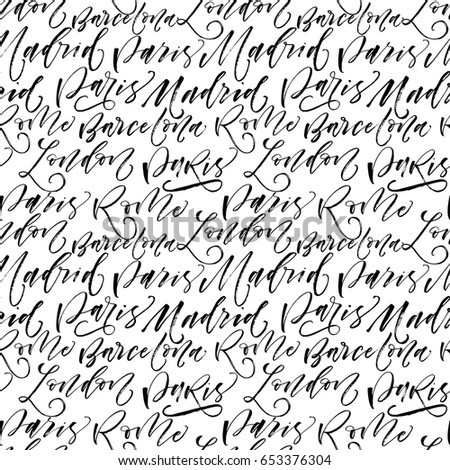 Barcelona London Barcelona
Madrid Paris Madrid Paris
Paris Madrid Paris
Rome Barcelona Rome Barcelona
London Paris London Paris
Paris Rome Paris Rome
Barcelona London Barcelona
Madrid Paris Madrid Paris
Paris Madrid Paris
Rome Barcelona Rome Barcelona
London Paris London Paris
Paris Rome Paris Rome
shutterstock.com · 653376304